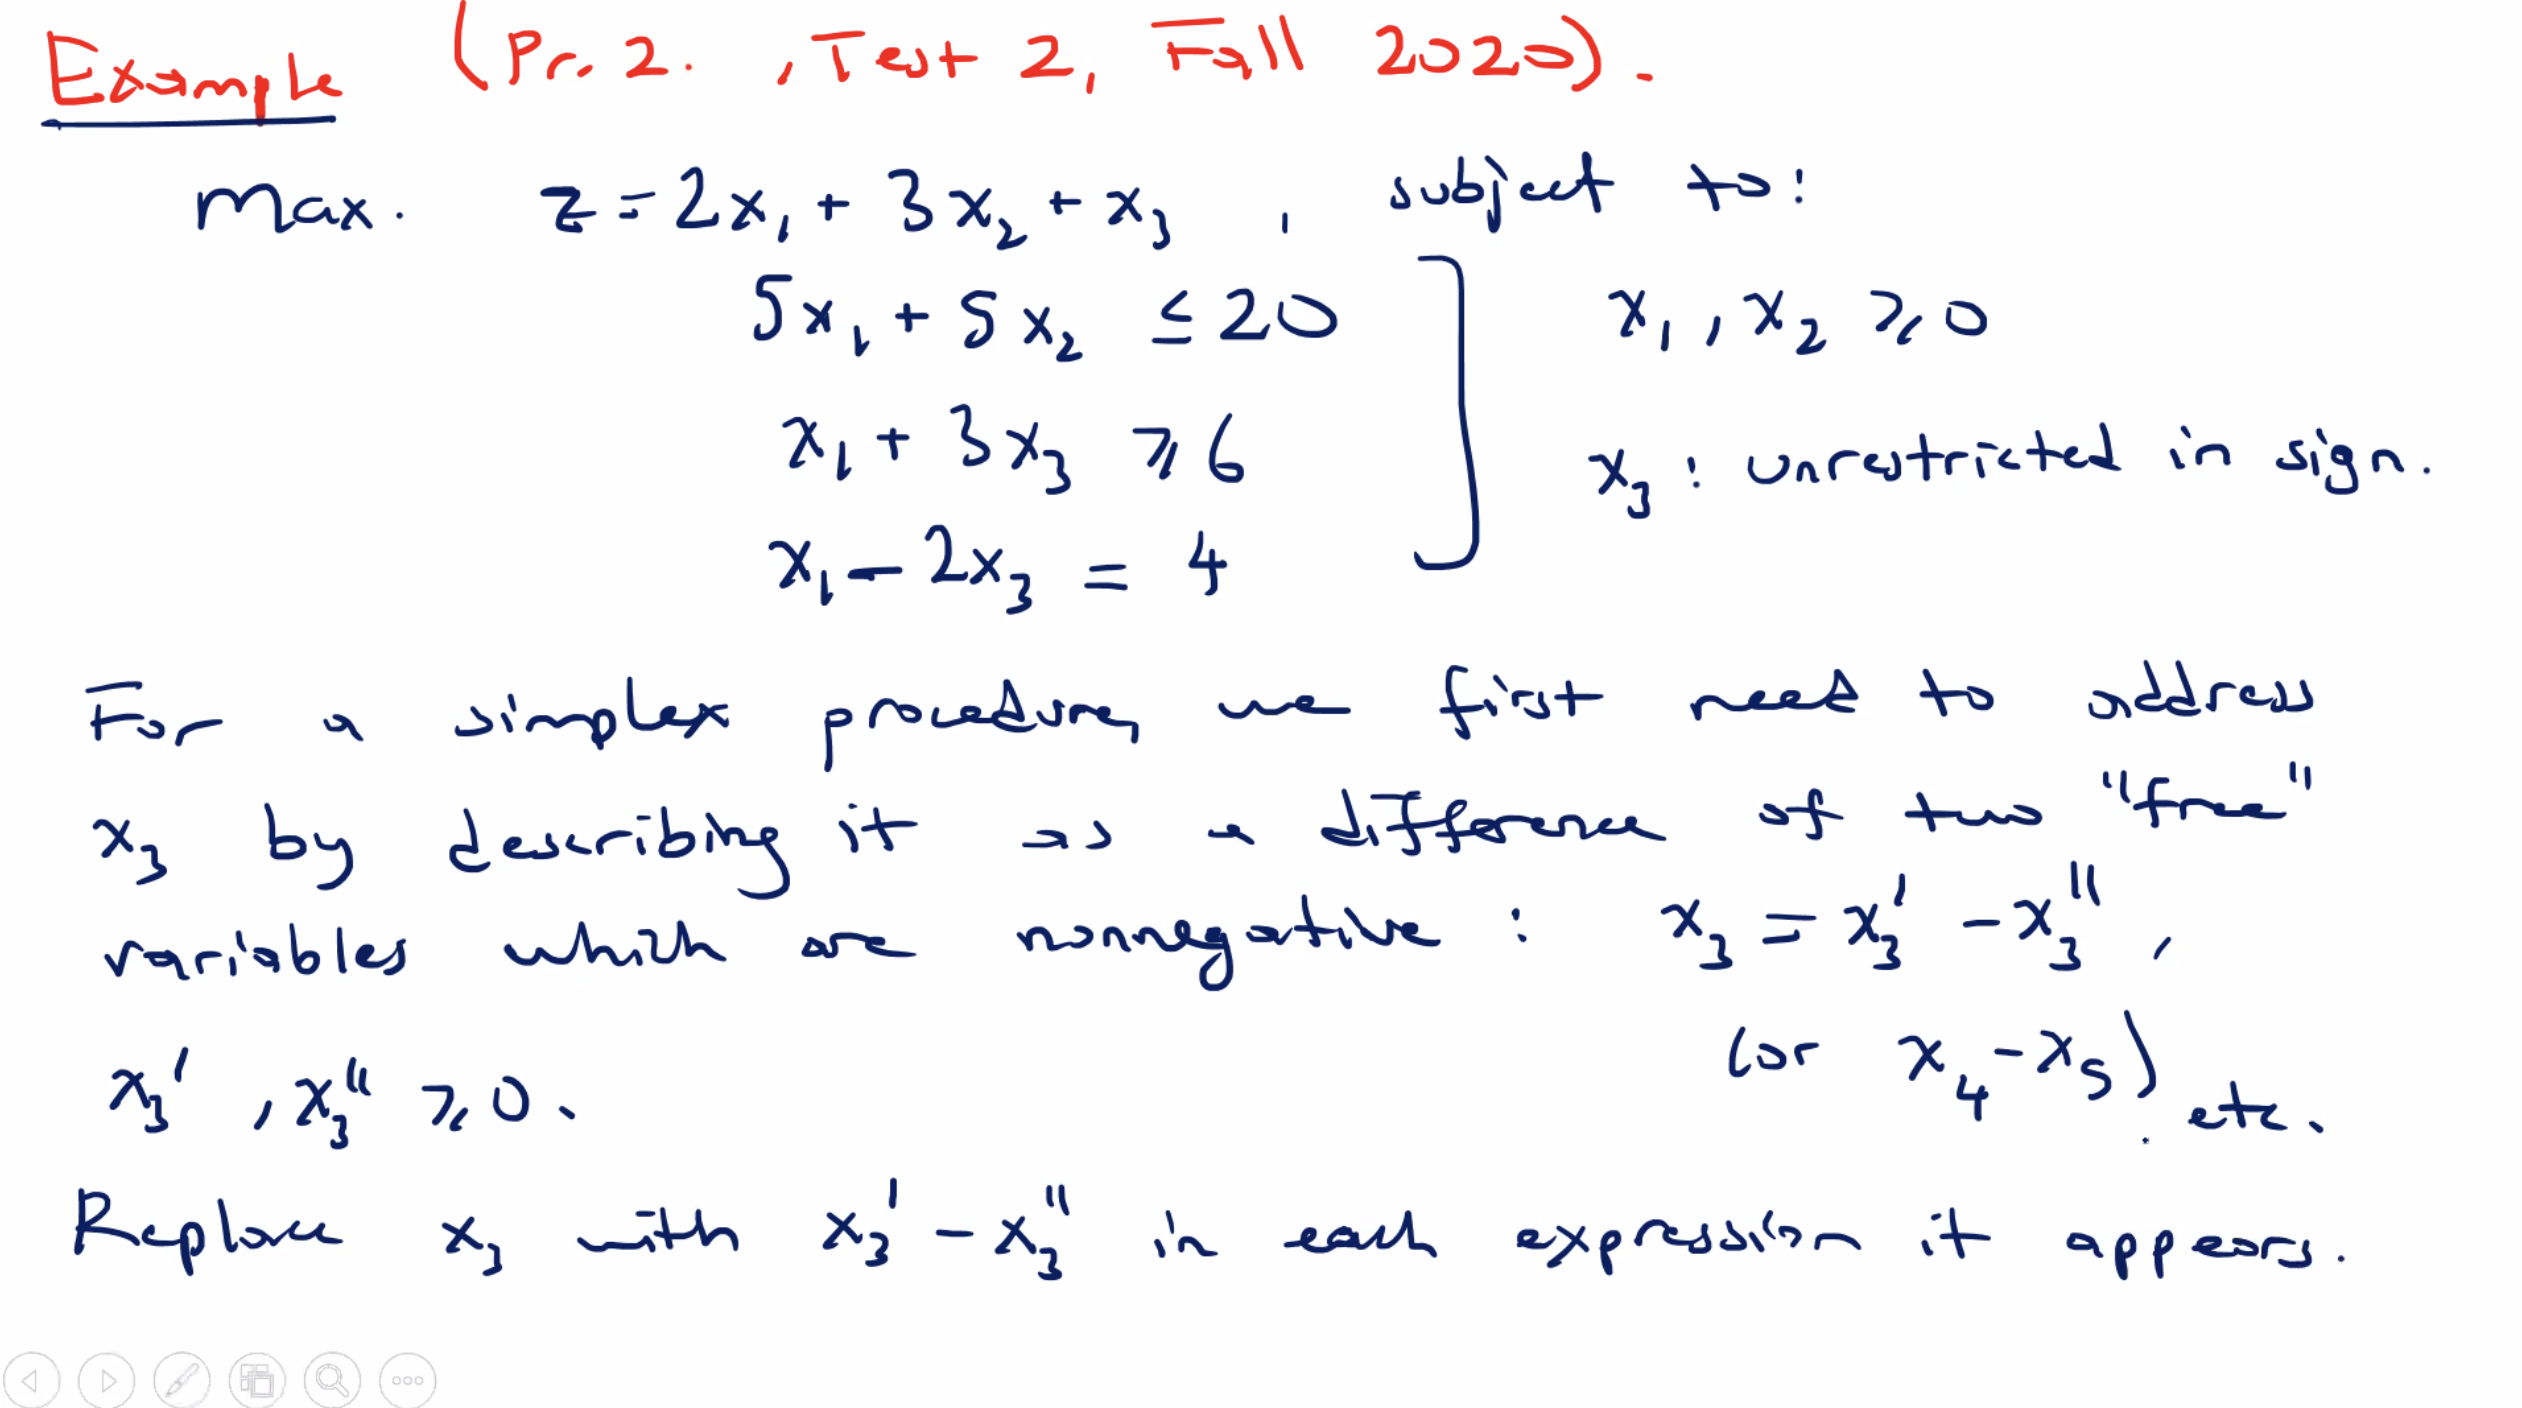 Example (Pr. 2. , Test 2, Fall 2020).
max. z = 2x₁ + 3x₂ + x₃ , subject to:
5x₁ + 5x₂ ≤ 20
x₁, x₂ ≥ 0
x₁ + 3x₃ ≥ 6
x₃ : unrestricted in sign.
x₁ – 2x₃ = 4
For a simplex procedure, we first need to address
x₃ by describing it as a difference of two "free"
variables which are nonnegative : x₃ = x₃' – x₃'' ,
(or x₄ – x₅) etc.
x₃' , x₃'' ≥ 0.
Replace x₃ with x₃' – x₃'' in each expression it appears.